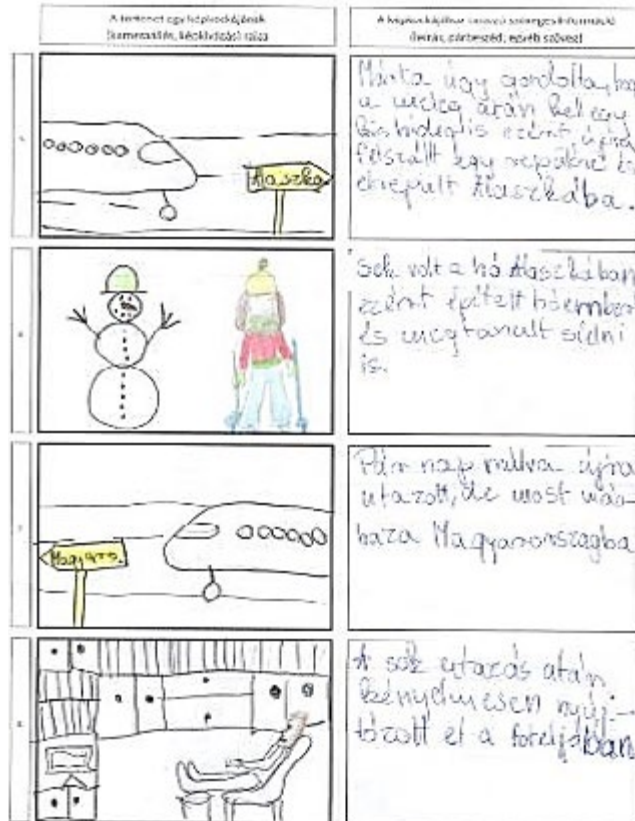 A történet egy képkockájának
(kameraállás, képkivágás) rajza
A képkockájához tartozó szöveges információ
(leírás, párbeszéd, egyéb szöveg)
Márta úgy gondolta, hogy
a meleg után kell egy
kis hideg is ezért újra
felszállt egy repülőre és
elrepült Alaszkába.
Alaszka
Sok volt a hó Alaszkában
ezért épített hóembert
és megtanult síelni
is.
Pár nap múlva újra
utazott, de most már
haza Magyarországba
Magyaro.
A sok utazás után
kényelmesen nyúj-
tózott el a foteljában